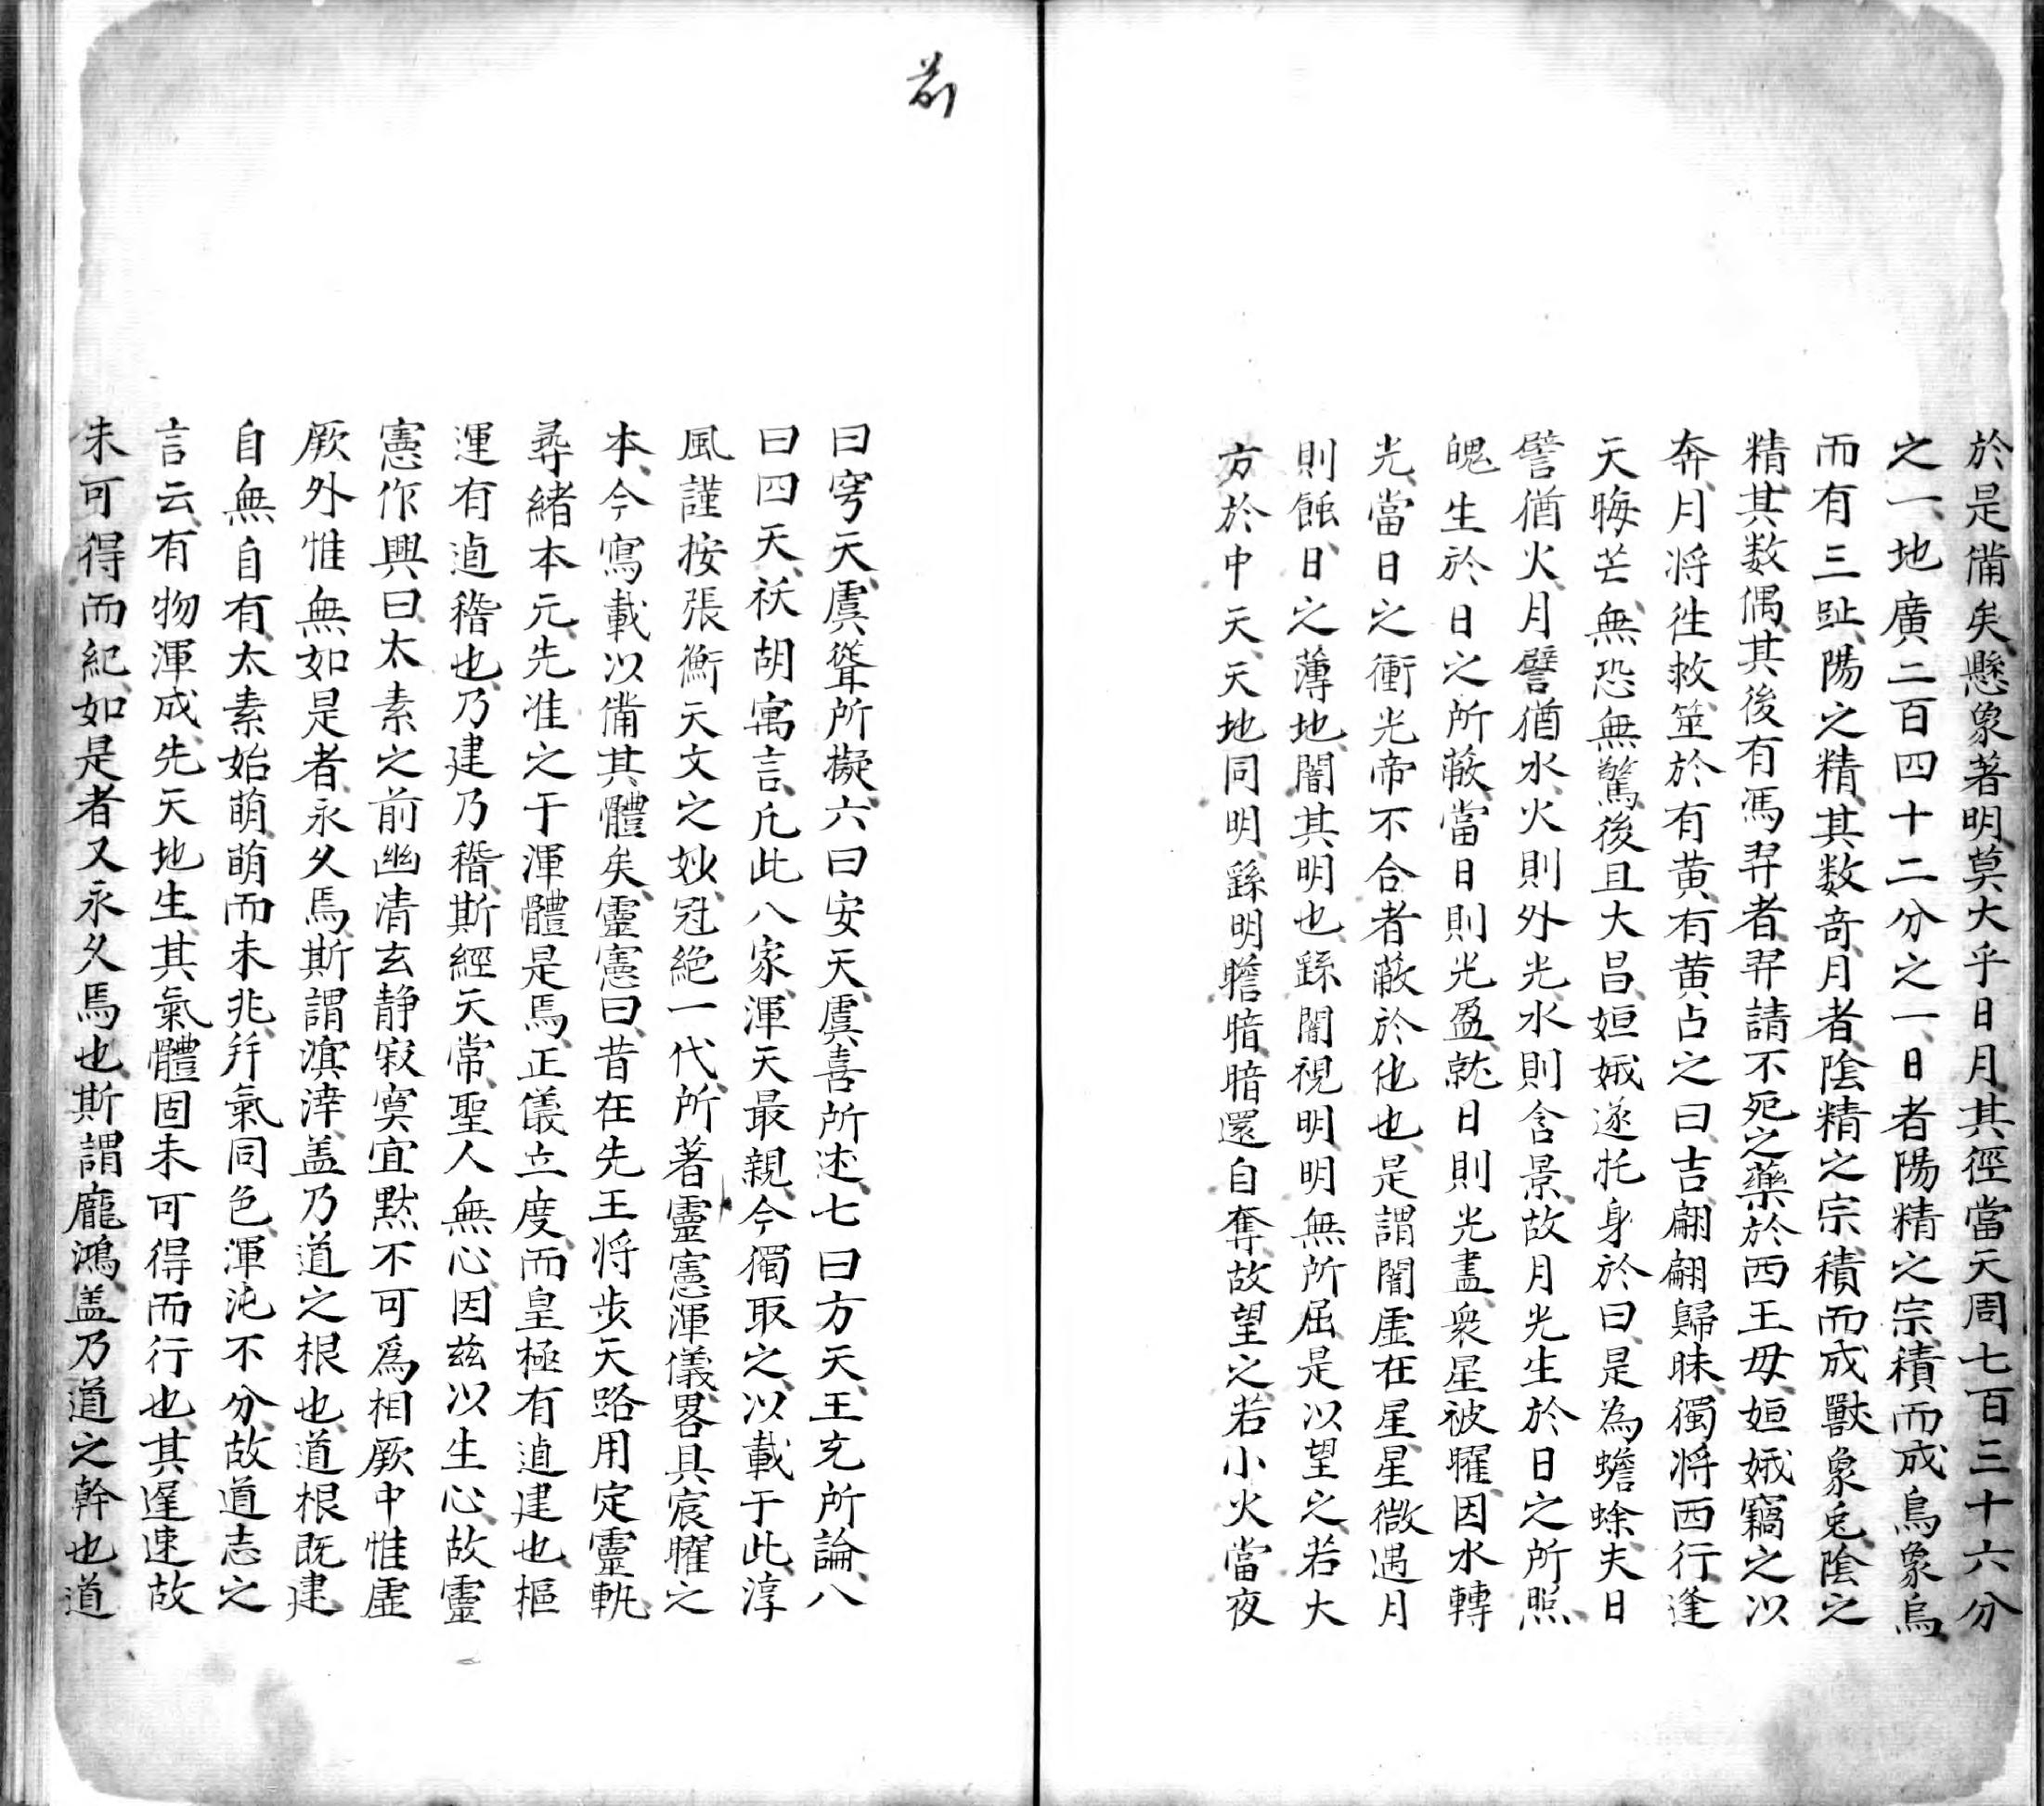 於是俻矣懸象著明莫大乎日月其徑當天周七百三十六分
之一地廣二百四十二分之一日者陽精之宗積而成烏象烏
而有三趾陽之精其数竒月者陰精之宗積而成獸象兎陰之
精其数偶其後有馮羿者羿請不死之藥於西王母姮娥竊之以
奔月将徃救筮於有黄有黄占之曰吉翩翩歸昧獨将西行逢
天晦芒無恐無驚後且大昌姮娥遂托身於曰是為蟾蜍夫日
譬猶火月譬猶水火則外光水則含景故月光生於日之所照
魄生於日之所蔽當日則光盈就日則光盡衆星被曜因水轉
光當日之衝光帝不合者蔽於他也是謂闇虛在星星微遇月
則蝕日之薄地闇其明也繇闇視明明無所屈是以望之若大
方於中天天地同明繇明瞻暗暗還自奪故望之若小火當夜
前
曰穹天虞聳所擬六曰安天虞喜所述七曰方天王充所論八
曰四天袄胡寓言凡此八家渾天最親今獨取之以載于此淳
風謹按張衡天文之妙冠絶一代所著靈憲渾儀畧具宸曜之
本今寫載以俻其體矣靈憲曰昔在先王将步天路用定靈軌
尋緒本元先准之于渾體是焉正儀立度而皇極有逌建也樞
運有逌稽也乃建乃稽斯經天常聖人無心因兹以生心故靈
憲作興曰太素之前幽清玄静寂寞宜黙不可爲相厥中惟虛
厥外惟無如是者永久焉斯謂溟涬盖乃道之根也道根既建
自無自有太素始萌萌而未兆并氣同色渾沌不分故道志之
言云有物渾成先天地生其氣體固未可得而行也其遲速故
未可得而紀如是者又永久焉也斯謂龐鴻盖乃道之幹也道